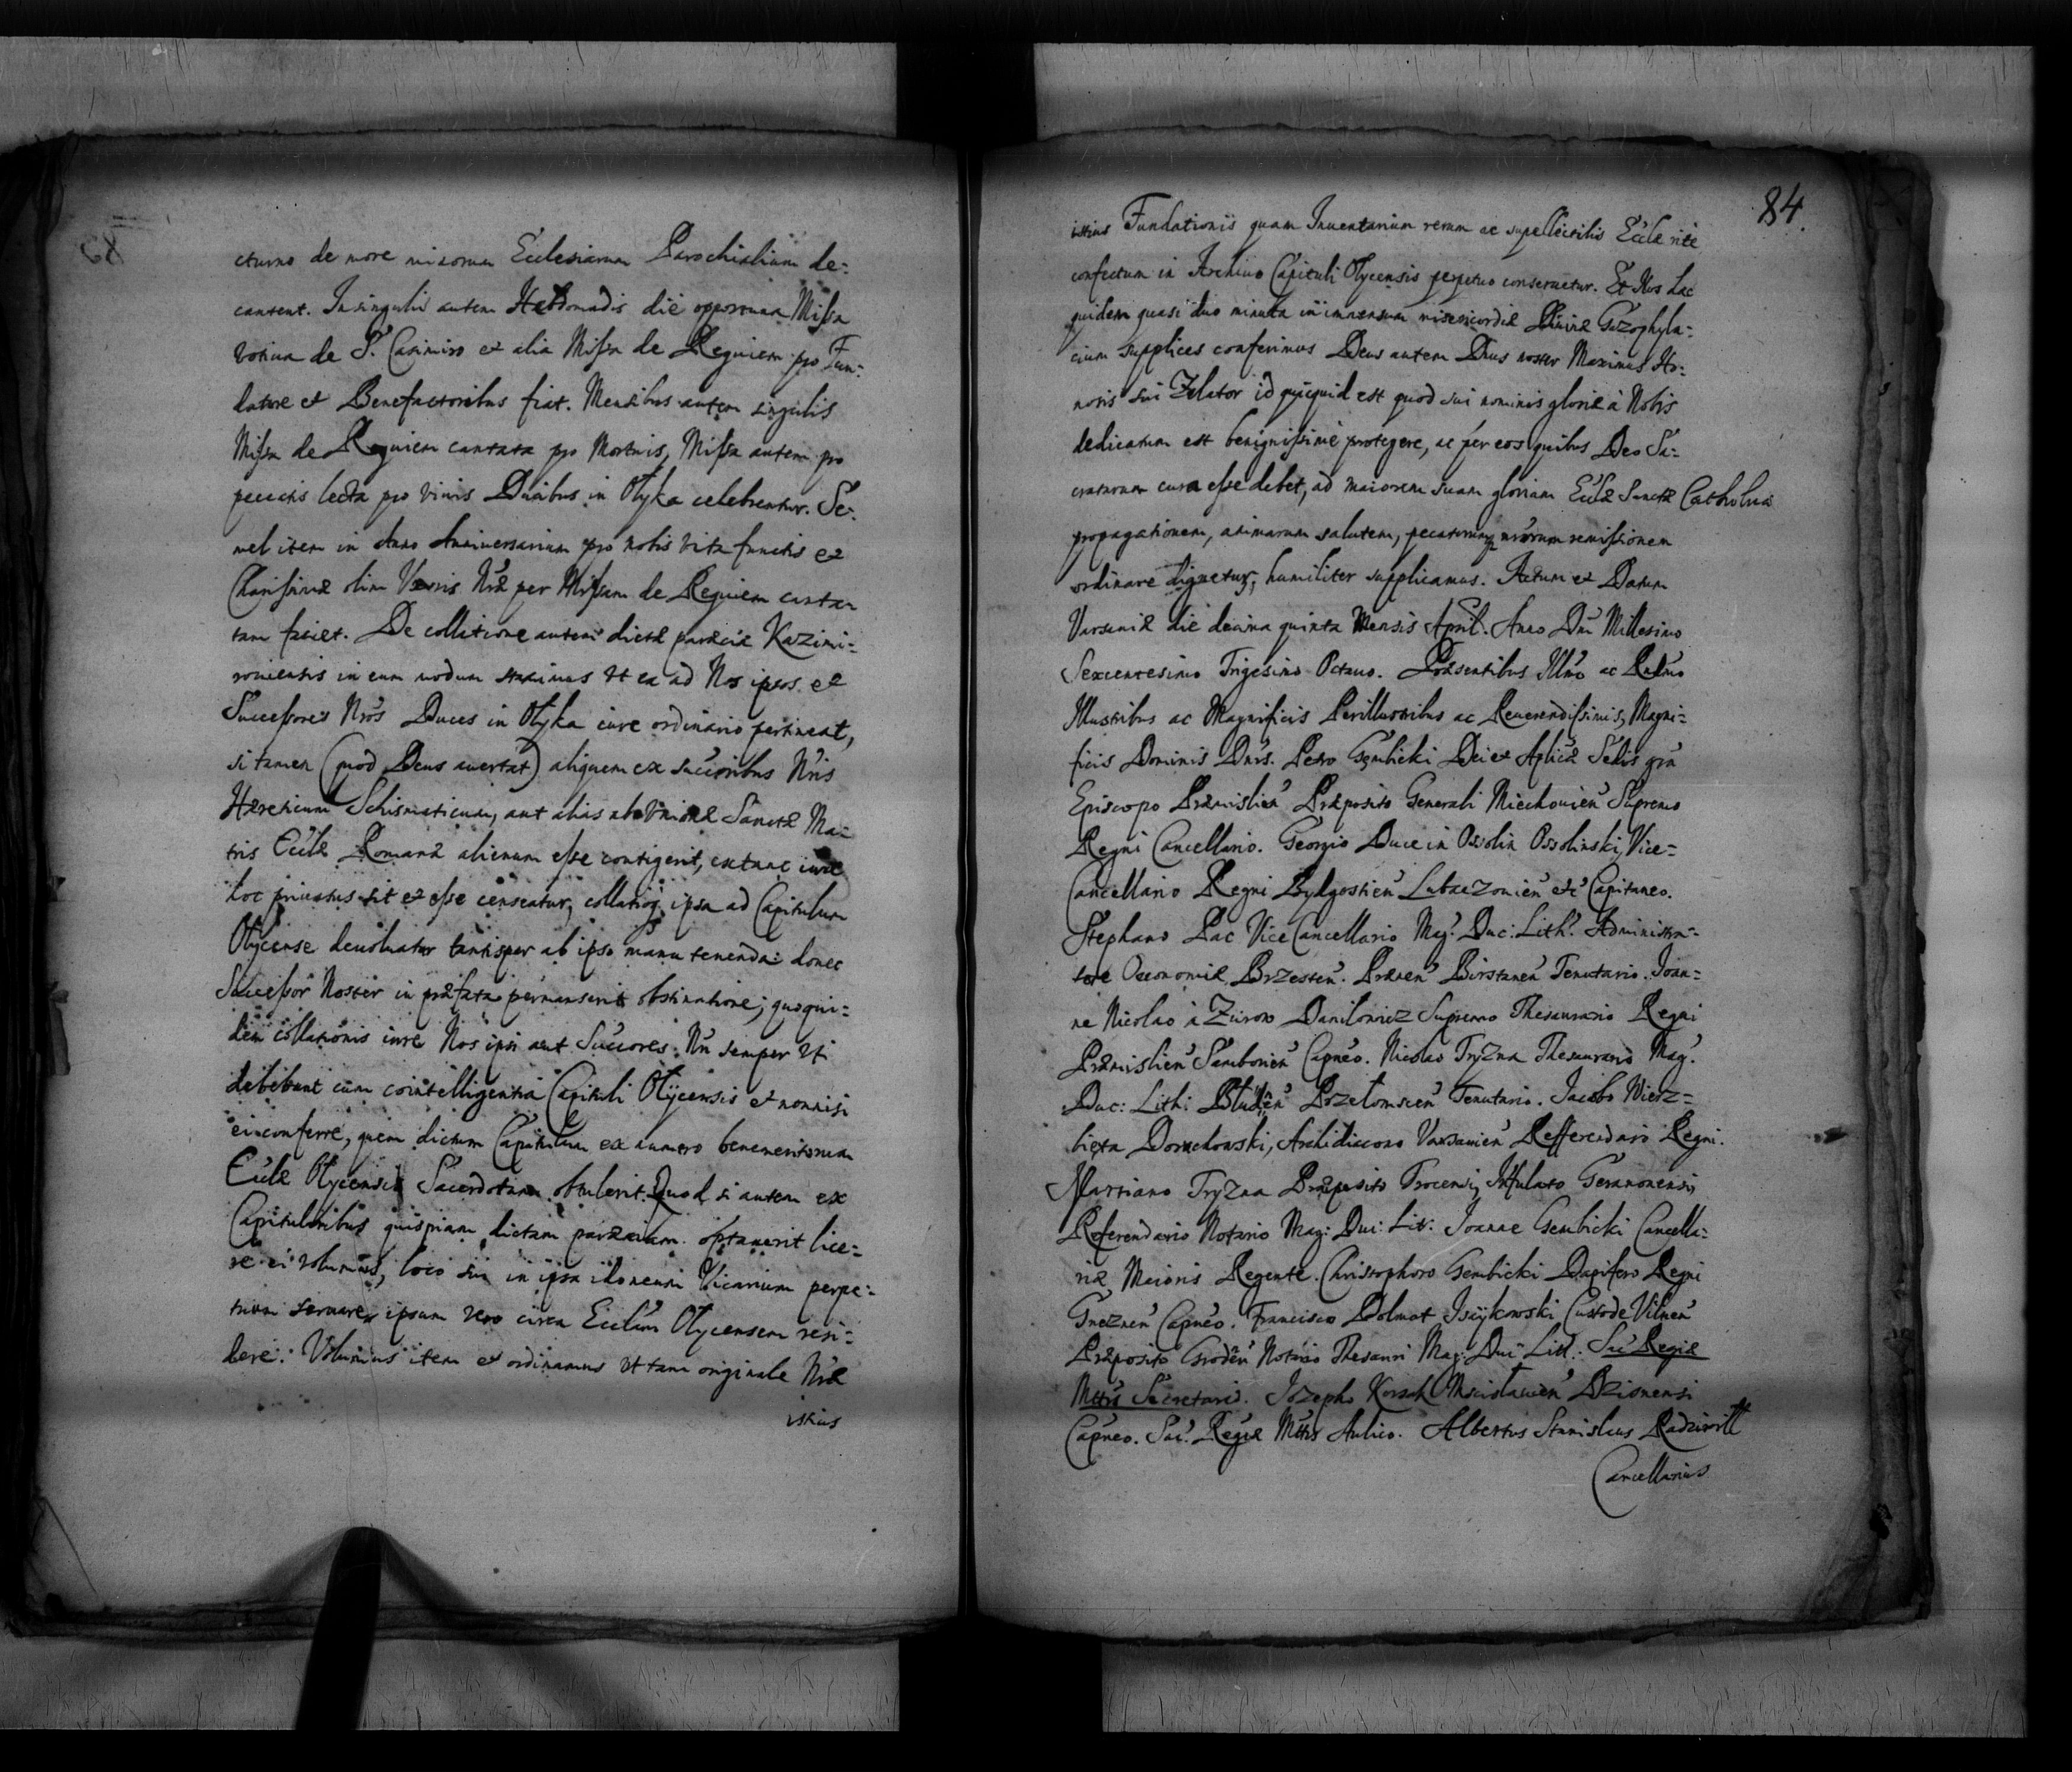 cturno de more minorum Ecclesiarum Parochialium de:
cantent. In singulis autem Hebdomadis die opportuna Missa
votiua de S. Casimiro et alia Missa de Requiem pro Fun:
datore et Benefactoribus fiat. Mensibus autem singulis
Missa de Requiem cantata pro Mortuis, Missa autem pro
peccatis lecta pro viuis Ducibus in Olyka celebrentur. Se:
mel item in Anno Anniuersarium pro nobis vita functis et
Charissimæ olim Uxoris Nræ per Missam de Requiem canta
tam fiet. De collatione autem dictæ paræciæ Kazimi:
roviensis in eum modum statuimus ut ea ad Nos ipsos et
Successores Nros Duces in Olyka iure ordinario pertineat,
si tamen (quod Deus auertat) aliquem ex succoribus Nris
Hæreticum Schismaticum, aut alias ab Unione Sanctæ Ma:
tris Eccle Romanæ alienum esse contigerit, extunc iure
hoc priuatus sit et esse censeatur, collatioq ipsa ad Capitulum
Olycense deuoluatur tantisper ab ipso manu tenenda donec
Successor Noster in præfata permanserit obstinatione; quoqui:
dem collationis iure Nos ipsi aut Succores Nri semper uti
debebunt cum cointelligentia Capituli Olycensis et nonnisi
ei conferre, quem dictum Capitulum ex numero benemeritorum
Eccle Olycensis Sacerdotum obtulerit. Quod si autem ex
Capitularibus quispiam dictam paræciam optauerit lice:
re ei volumus, loco sui in ipsa idoneum Vicarium perpe:
tuum seruare, ipsum vero circa Ecclam Olycensem resi:
dere. Volumus item et ordinamus ut tam originale Nræ
istius
84.
istius Fundationis quam Inuentarium rerum ac supellectilis Eccle rite
confectum in Archiuo Capituli Olycensis perpetuo conseruetur. Et Nos hæc
quidem quasi duo minuta in immensum misericordiæ Diuinæ Gazophyla:
cium supplices conferimus Deus autem Dnus noster Maximus Ho:
noris sui Zelator id quicquid est quod sui nominis gloriæ à Nobis
dedicatum est benignissime protegere, ac per eos quibus Deo Sa:
cratorum cura esse debet, ad maiorem suam gloriam Eccle Sanctæ Catholicæ
propagationem, animarum salutem, pecatorumq nrorum remissionem
ordinare dignetur, humiliter supplicamus. Actum et Datum
Varsauiæ die decima quinta Mensis April. Anno Dni Millesimo
Sexcentesimo Trigesimo Octauo. Præsentibus Illmo ac Rndmo
Illustribus ac Magnificis Perillustribus ac Reuerendissimis, Magni:
ficis Dominis Dnis. Petro Gembicki Dei et Aplicæ Sedis gra
Episcopo Præmislien Præposito Generali Miechouien Supremo
Regni Cancellario. Georgio Duce in Ossolin Ossolinski, Vice=
Cancellario Regni Bydgostien Lubaczouien etc Capitaneo.
Stephano Pac Vice Cancellario Mag. Duc: Lith. Administra=
tore Oeconomiæ Brzesten. Prenen Birstanen Tenutario. Joan=
ne Nicolao à Zurow Danilowicz Supremo Thesaurario Regni
Præmislien Samborien Capneo. Nicolao Tryzna Thesaurario Mag.
Duc: Lith: Przelomscen Tenutario. Jacobo Wierz=
bięta Doruchowski, Archidiacono Varsauien Refferendario Regni.
Martiano Tryzna Præposito Trocensi, Infulato Geranonensi,
Referendario Notario Mag: Duc: Lit: Joanne Gembicki Cancella:
riæ Maioris Regente. Christophoro Gembicki Dapifero Regni
Gneznen Capneo. Francisco Dolmat Isaykowski Custode Vilnen
Præposito Grodñ Notario Thesauri Mag: Duc: Lith: Sac Regiæ
Mttis Secretario. Jozepho Korsak Mscislauien Dzisnensi
Capneo. Sac. Regiæ Mttis Aulico. Albertus Stanislaus Radziwill
Cancellarius